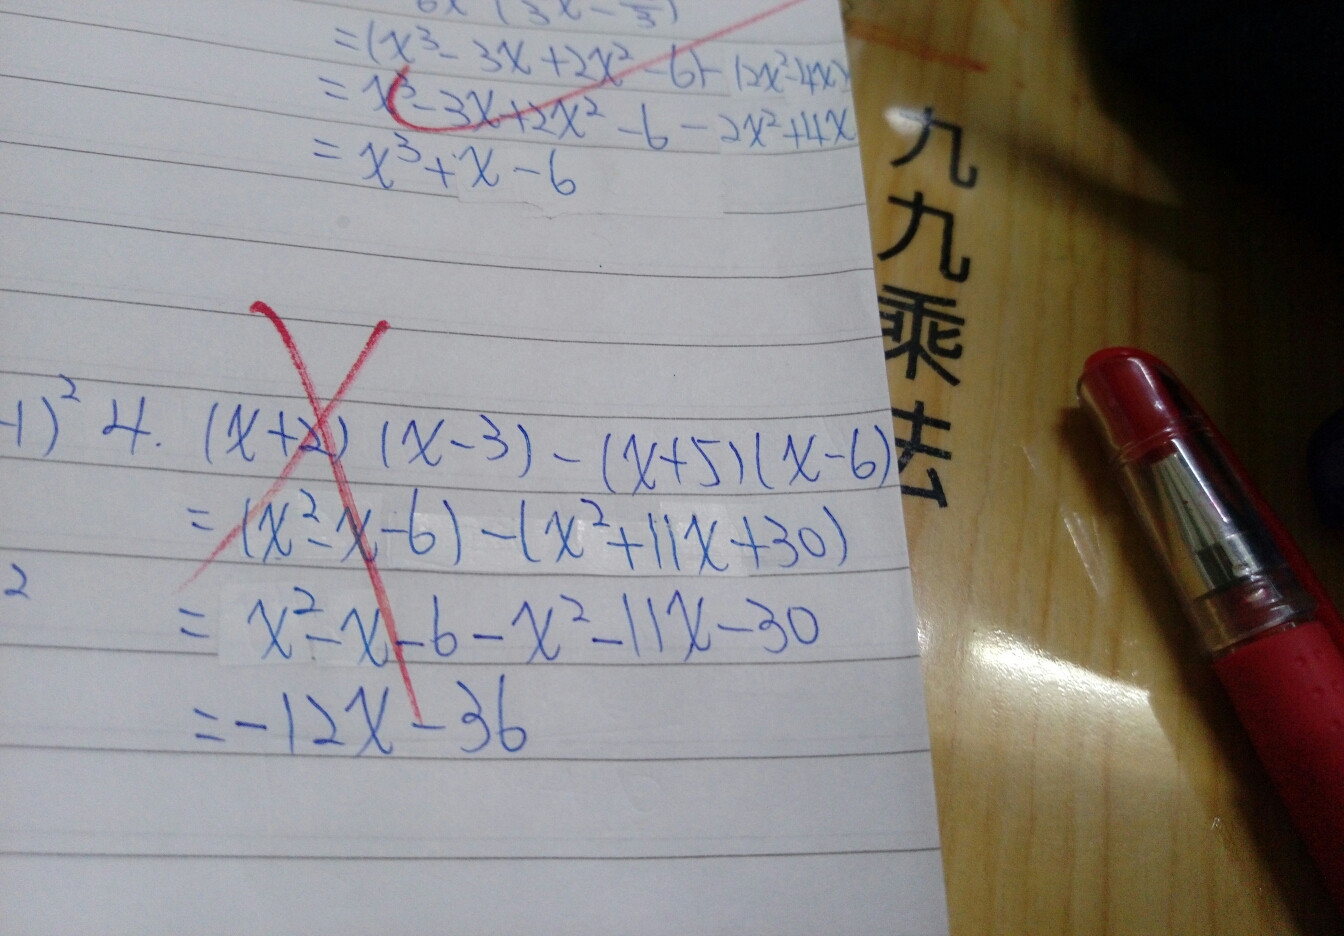 6x (3x - 5/3)
= (x³ - 3x + 2x² - 6) - (2x² - 4x)
= x³ - 3x + 2x² - 6 - 2x² + 4x
= x³ + x - 6
-1)² 4. (x+2) (x-3) - (x+5)(x-6)
= (x² - x - 6) - (x² + 11x + 30)
2
= x² - x - 6 - x² - 11x - 30
= -12x - 36
九九乘法